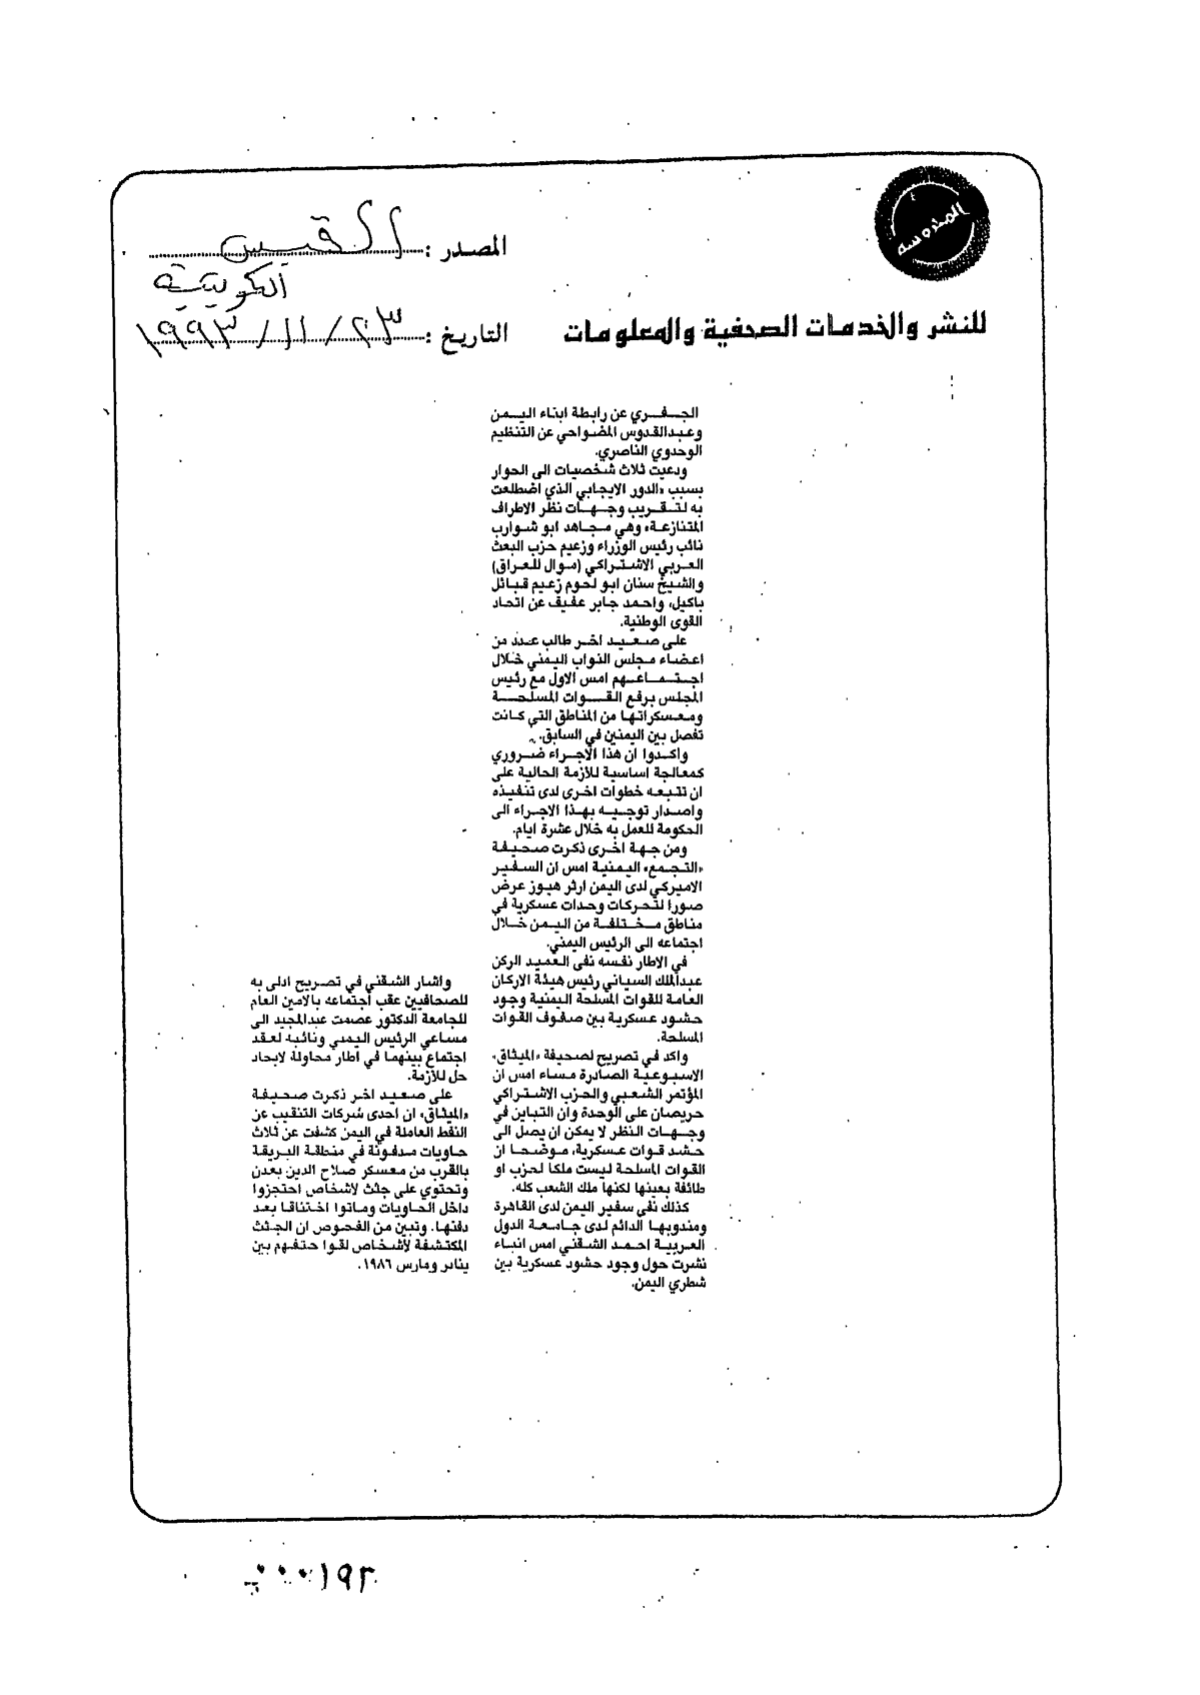 المدوسه
المصدر : القبس
الكويتية
للنشر والخدمات الصحفية والمعلومات
التاريخ : ٢٣ / ١١ / ١٩٩٣
الجفري عن رابطة ابناء اليمن
وعبدالقدوس المضواحي عن التنظيم
الوحدوي الناصري.
ودعيت ثلاث شخصيات الى الحوار
بسبب «الدور الايجابي الذي اضطلعت
به لتقريب وجهات نظر الاطراف
المتنازعة» وهي مجاهد ابو شوارب
نائب رئيس الوزراء وزعيم حزب البعث
العربي الاشتراكي (موال للعراق)
والشيخ سنان ابو لحوم زعيم قبائل
باكيل، واحمد جابر عفيف عن اتحاد
القوى الوطنية.
على صعيد اخر طالب عدد من
اعضاء مجلس النواب اليمني خلال
اجتماعهم امس الاول مع رئيس
المجلس برفع القوات المسلحة
ومعسكراتها من المناطق التي كانت
تفصل بين اليمنين في السابق.
واكدوا ان هذا الاجراء ضروري
كمعالجة اساسية للازمة الحالية على
ان تتبعه خطوات اخرى لدى تنفيذه
واصدار توجيه بهذا الاجراء الى
الحكومة للعمل به خلال عشرة ايام.
ومن جهة اخرى ذكرت صحيفة
«التجمع» اليمنية امس ان السفير
الاميركي لدى اليمن ارثر هيوز عرض
صورا لتحركات وحدات عسكرية في
مناطق مختلفة من اليمن خلال
اجتماعه الى الرئيس اليمني.
في الاطار نفسه نفى العميد الركن
عبدالملك السياني رئيس هيئة الاركان
العامة للقوات المسلحة اليمنية وجود
حشود عسكرية بين صفوف القوات
المسلحة.
واكد في تصريح لصحيفة «الميثاق»
الاسبوعية الصادرة مساء امس ان
المؤتمر الشعبي والحزب الاشتراكي
حريصان على الوحدة وان التباين في
وجهات النظر لا يمكن ان يصل الى
حشد قوات عسكرية، موضحا ان
القوات المسلحة ليست ملكا لحزب او
طائفة بعينها لكنها ملك الشعب كله.
كذلك نفى سفير اليمن لدى القاهرة
ومندوبها الدائم لدى جامعة الدول
العربية احمد الشقني امس انباء
نشرت حول وجود حشود عسكرية بين
شطري اليمن.
واشار الشقني في تصريح ادلى به
للصحافيين عقب اجتماعه بالامين العام
للجامعة الدكتور عصمت عبدالمجيد الى
مساعي الرئيس اليمني ونائبه لعقد
اجتماع بينهما في اطار محاولة لايجاد
حل للأزمة.
على صعيد اخر ذكرت صحيفة
«الميثاق» ان احدى شركات التنقيب عن
النفط العاملة في اليمن كشفت عن ثلاث
حاويات مدفونة في منطقة البريقة
بالقرب من معسكر صلاح الدين بعدن
وتحتوي على جثث لاشخاص احتجزوا
داخل الحاويات وماتوا اختناقا بعد
دفنها. وتبين من الفحوص ان الجثث
المكتشفة لأشخاص لقوا حتفهم بين
يناير ومارس ١٩٨٦.